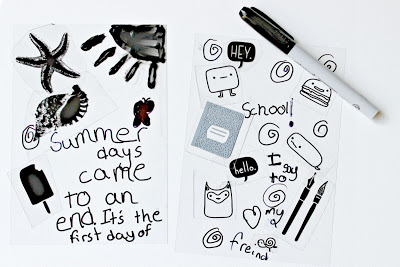 Summer
days
came
to an
end. It's the
first day of
HEY.
School!
hello.
I
say
to
my
freind